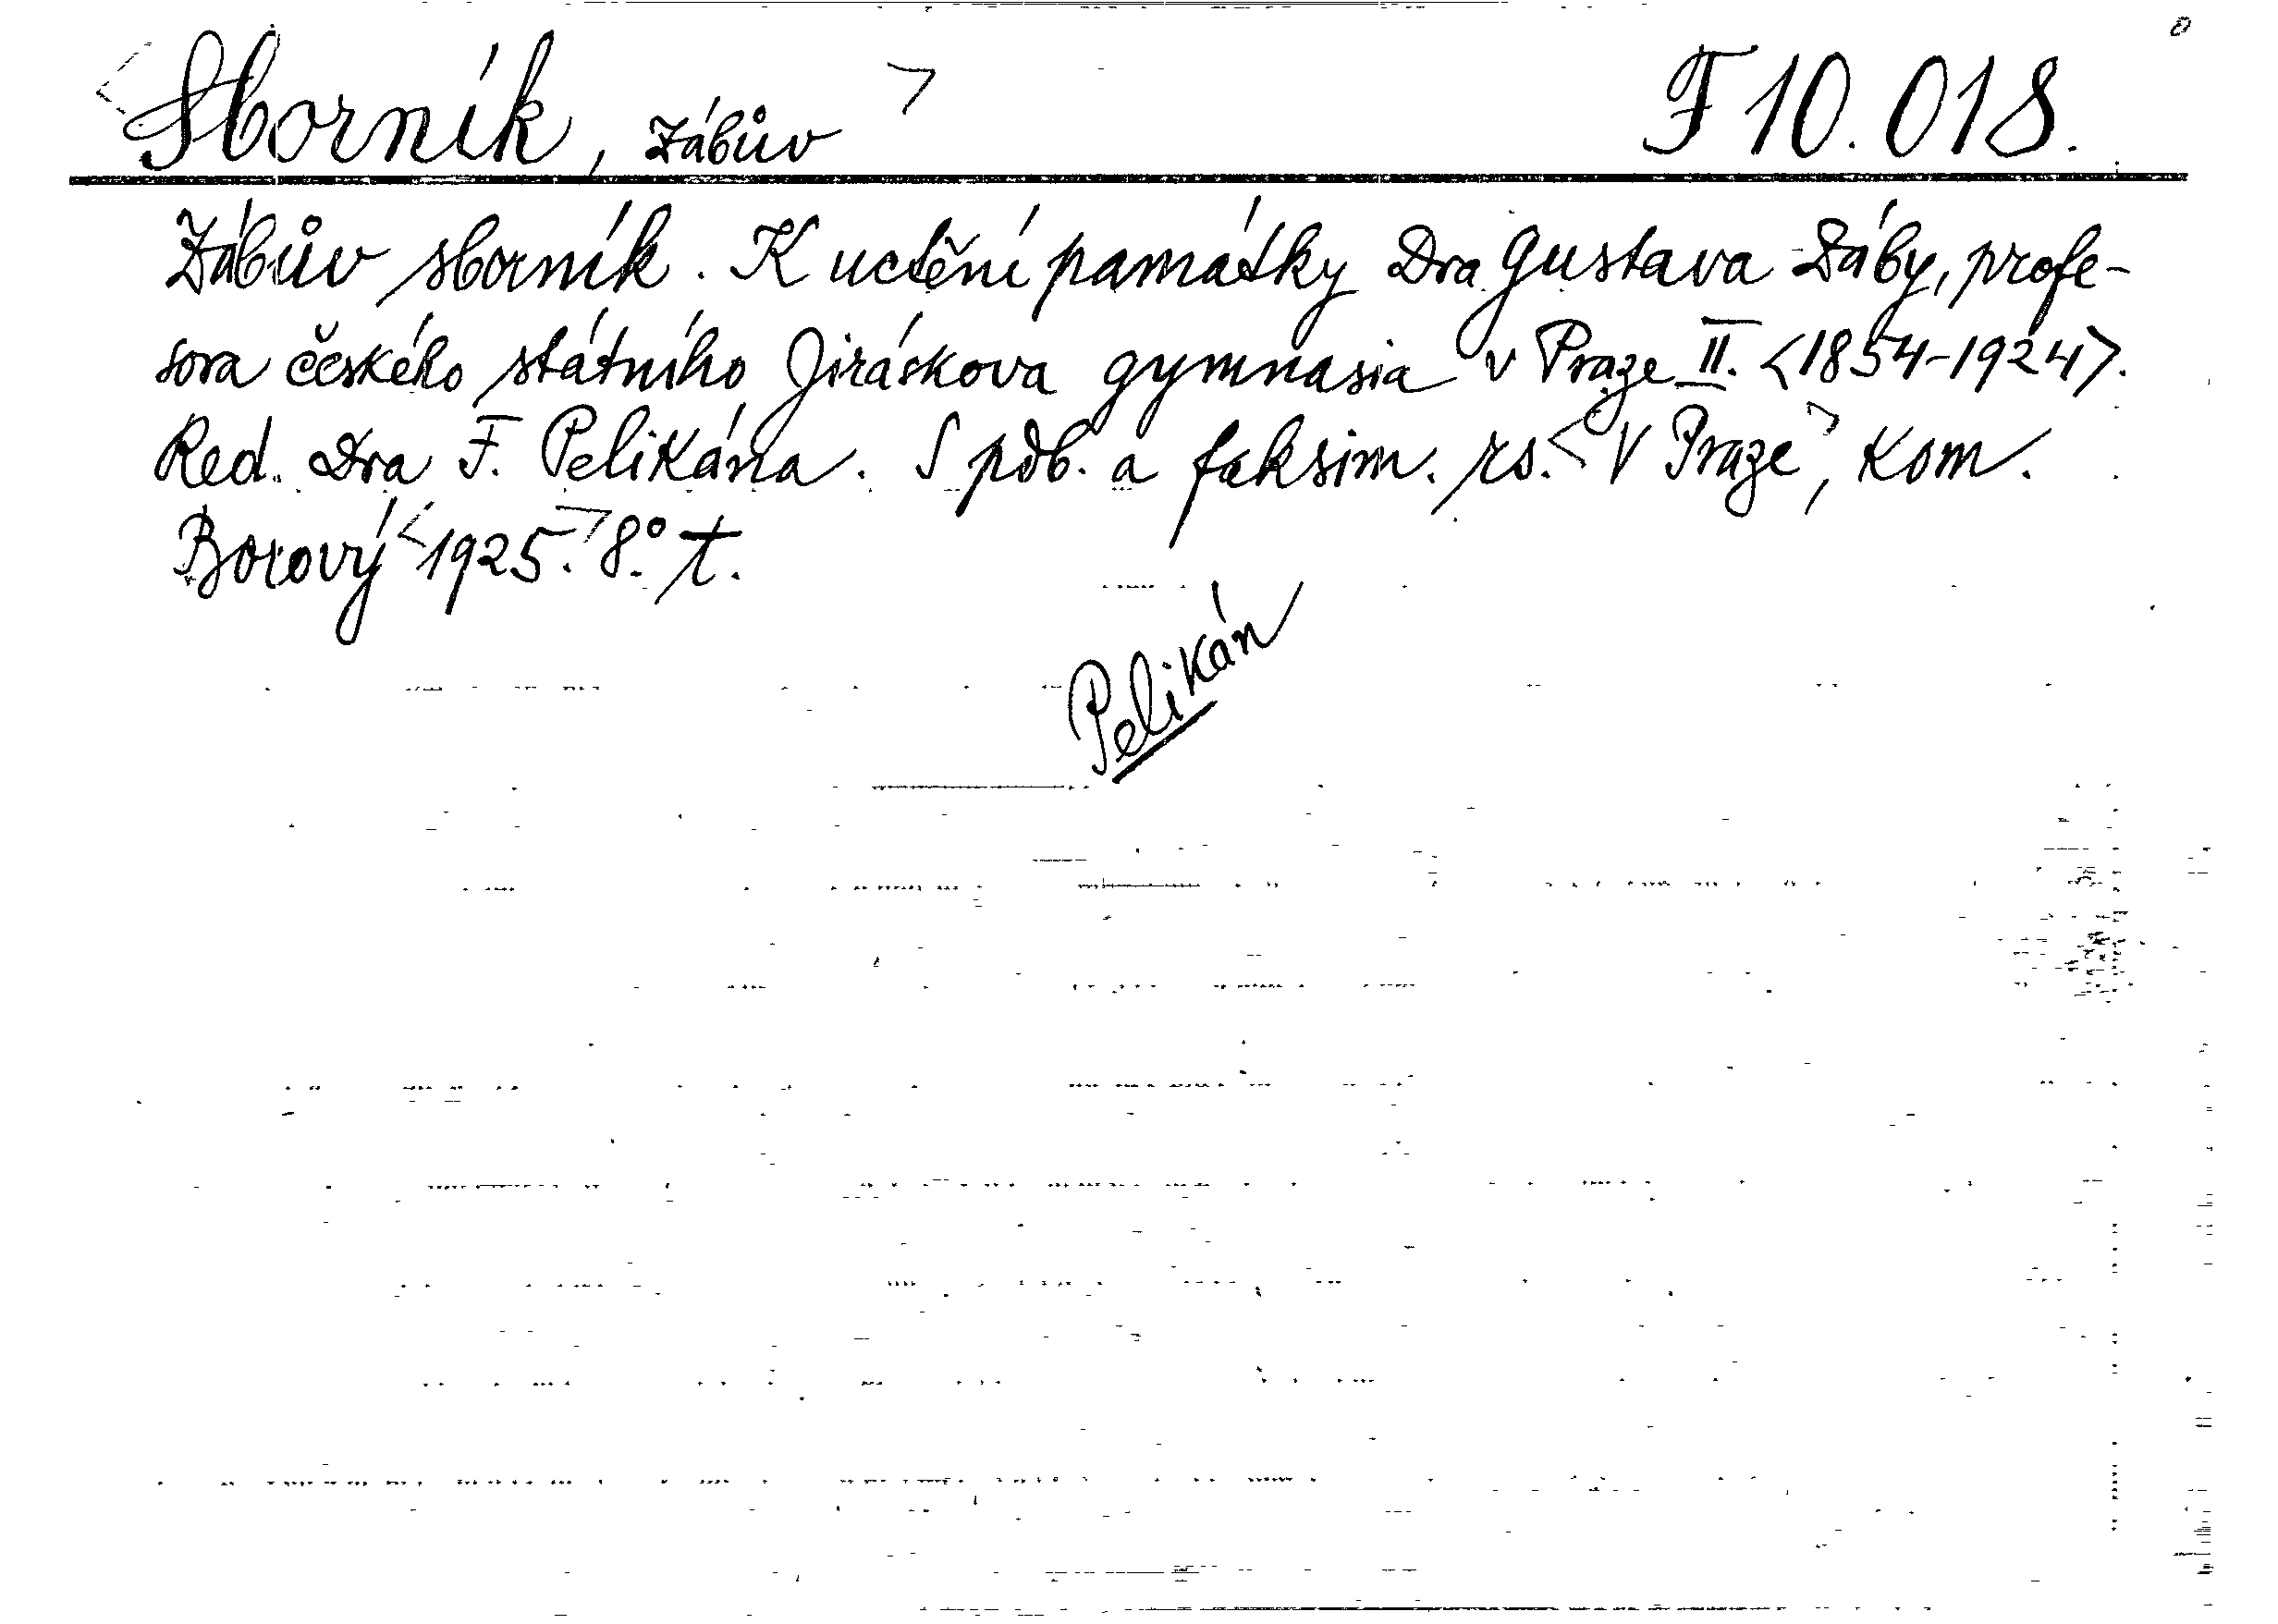 <Sborník, Zábův> F 10.018.
Zábův sborník. K uctění památky Dra Gustava Záby, profe-
sora českého státního Jiráskova gymnasia v Praze II. <1854-1924>.
Red. Dra F. Pelikána. S pdb. a faksim. rs. <V Praze>, Kom.
Borový <1925.> 8.° t.
Pelikán